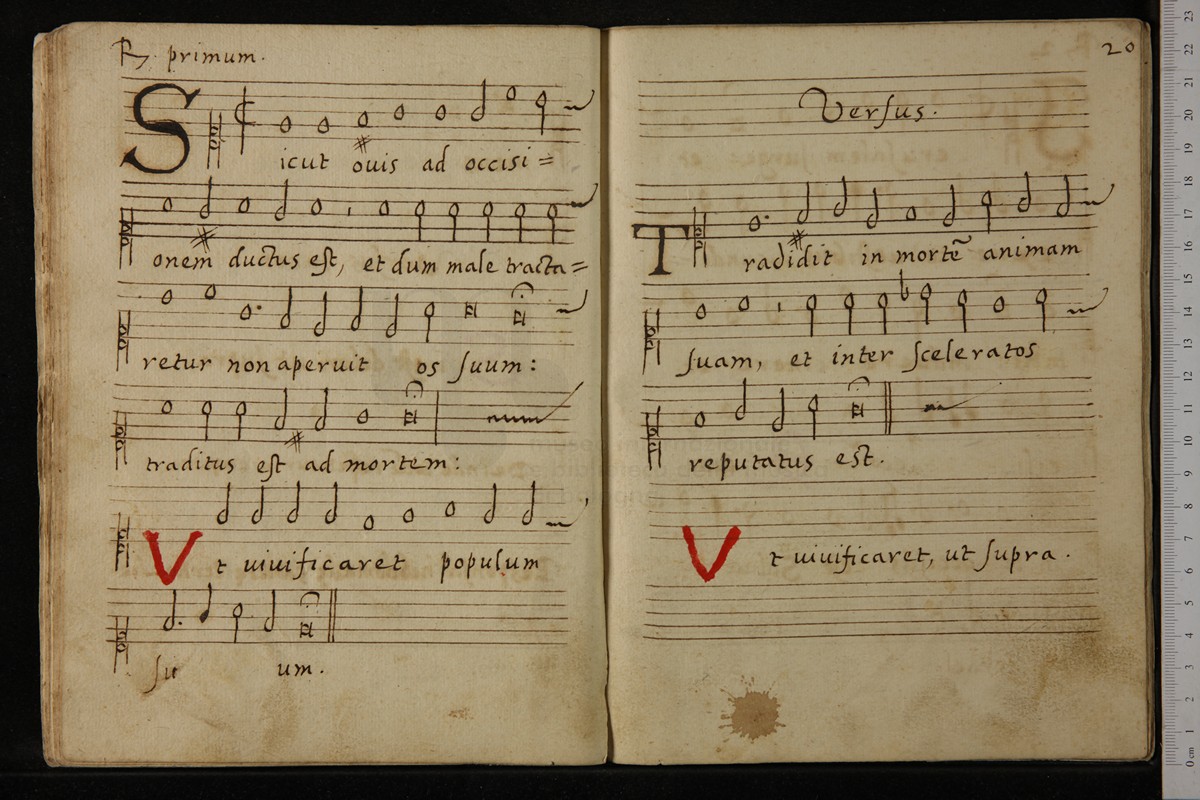 R. primum.
Sicut ovis ad occisi=
onem ductus est, et dum male tracta=
retur non aperuit os suum:
traditus est ad mortem:
Vt vivificaret populum
su um.
20
Versus.
Tradidit in mortẽ animam
suam, et inter sceleratos
reputatus est.
Vt vivificaret, ut supra.